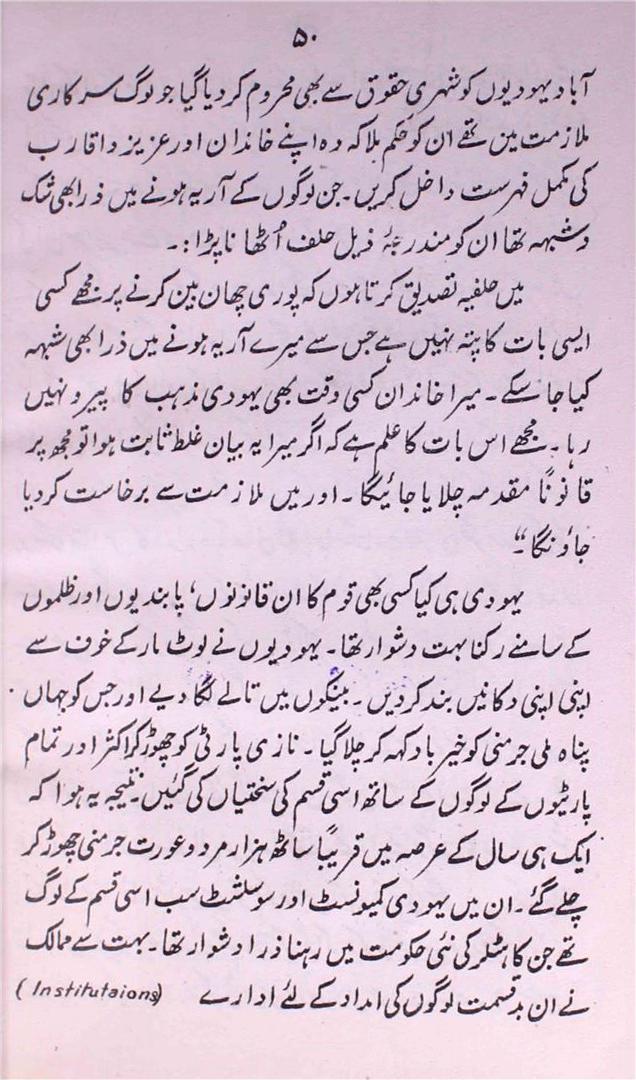 ۵۰
آباد یہودیوں کو شہری حقوق سے بھی محروم کر دیا گیا جو لوگ سرکاری
ملازمت میں تھے ان کو حکم ملا کہ وہ اپنے خاندان اور عزیز و اقارب
کی مکمل فہرست داخل کریں۔ جن لوگوں کے آریہ ہونے میں ذرا بھی شک
و شبہہ تھا ان کو مندرجۂ ذیل حلف اُٹھانا پڑا:۔
میں حلفیہ تصدیق کرتا ہوں کہ پوری چھان بین کرنے پر مجھے کسی
ایسی بات کا پتہ نہیں ہے جس سے میرے آریہ ہونے میں ذرا بھی شبہہ
کیا جا سکے۔ میرا خاندان کسی وقت بھی یہودی مذہب کا پیرو نہیں
رہا۔ مجھے اس بات کا علم ہے کہ اگر میرا یہ بیان غلط ثابت ہوا تو مجھ پر
قانوناً مقدمہ چلایا جائیگا۔ اور میں ملازمت سے برخاست کر دیا
جاؤنگا"
یہودی ہی کیا کسی بھی قوم کا ان قانونوں، پابندیوں اور ظلموں
کے سامنے رکنا بہت دشوار تھا۔ یہودیوں نے لوٹ مار کے خوف سے
اپنی اپنی دکانیں بند کر دیں۔ بینکوں میں تالے لگا دیے اور جس کو جہاں
پناہ ملی جرمنی کو خیر باد کہہ کر چلا گیا۔ نازی پارٹی کو چھوڑ کر اکثر اور تمام
پارٹیوں کے لوگوں کے ساتھ اسی قسم کی سختیاں کی گئیں۔ نتیجہ یہ ہوا کہ
ایک ہی سال کے عرصہ میں قریباً ساٹھ ہزار مرد و عورت جرمنی چھوڑ کر
چلے گئے۔ ان میں یہودی کمیونسٹ اور سوسلشٹ سب اسی قسم کے لوگ
تھے جن کا ہٹلر کی نئی حکومت میں رہنا ذرا دشوار تھا۔ بہت سے ممالک
نے ان بدقسمت لوگوں کی امداد کے لئے ادارے (Institutaions)